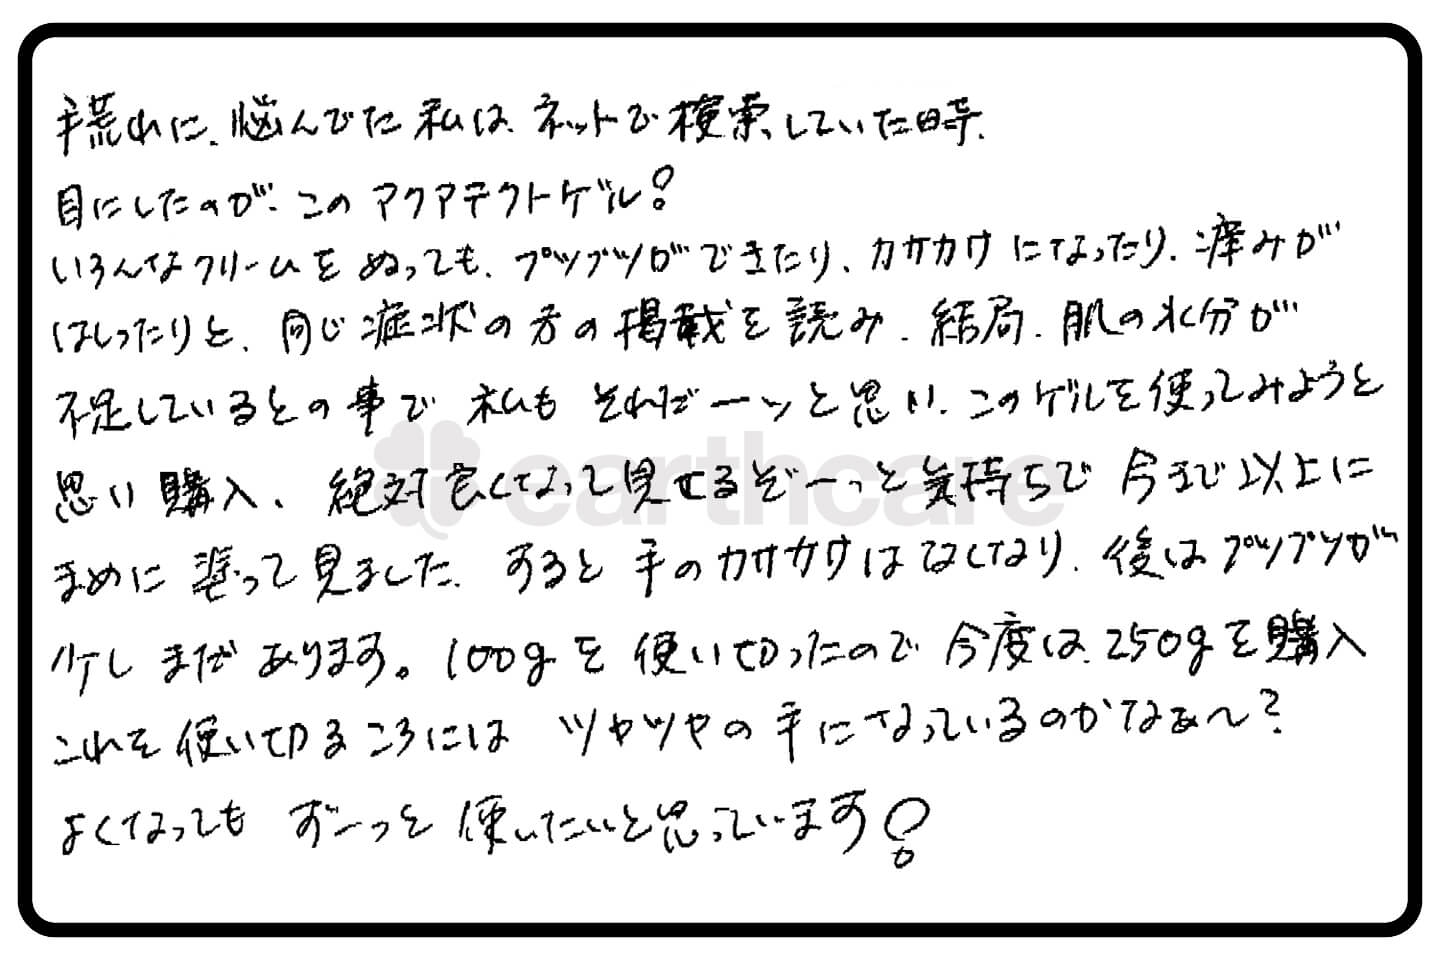 手荒れに、悩んでた私は、ネットで検索していた時、
目にしたのが、このアクアテクトゲル!
いろんなクリームをぬっても、プツプツができたり、カサカサになったり、痒みが
はしったりと、同じ症状の方の掲載を読み、結局、肌の水分が
不足しているとの事で私もそれだーッと思い、このゲルを使ってみようと
思い購入、絶対良くなって見せるぞーっと気持ちで今まで以上に
まめに塗って見ました。すると手のカサカサはなくなり、後はプツプツが
少しまだあります。100gを使い切ったので今度は、250gを購入
これを使い切るころにはツヤツヤの手になっているのかなぁ〜?
よくなってもずーっと使いたいと思っています!
earthcare